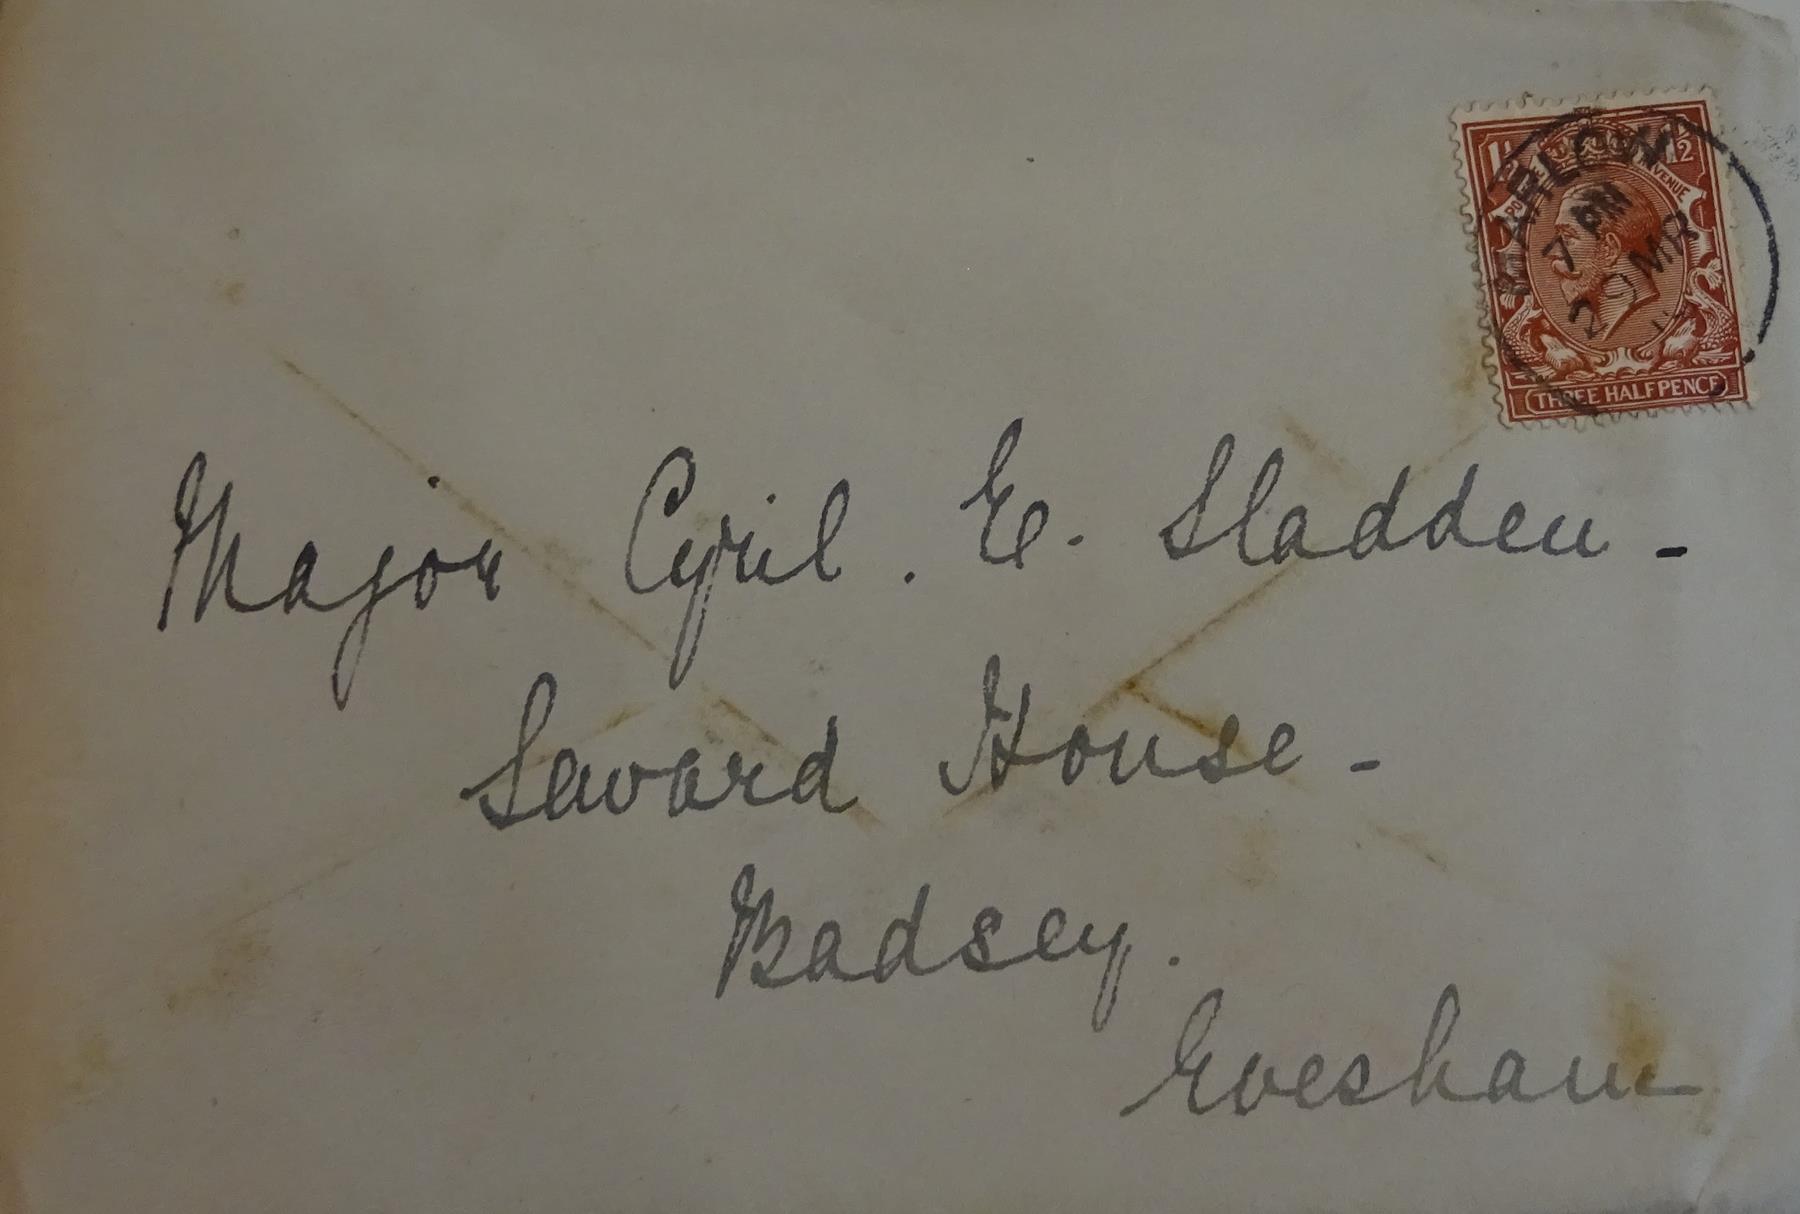 1½ 1½
POSTAGE REVENUE
THREE HALFPENCE
MARLOW
7 PM
20 MR
Major Cyril. E. Sladden -
Seward House -
Badsey.
Evesham